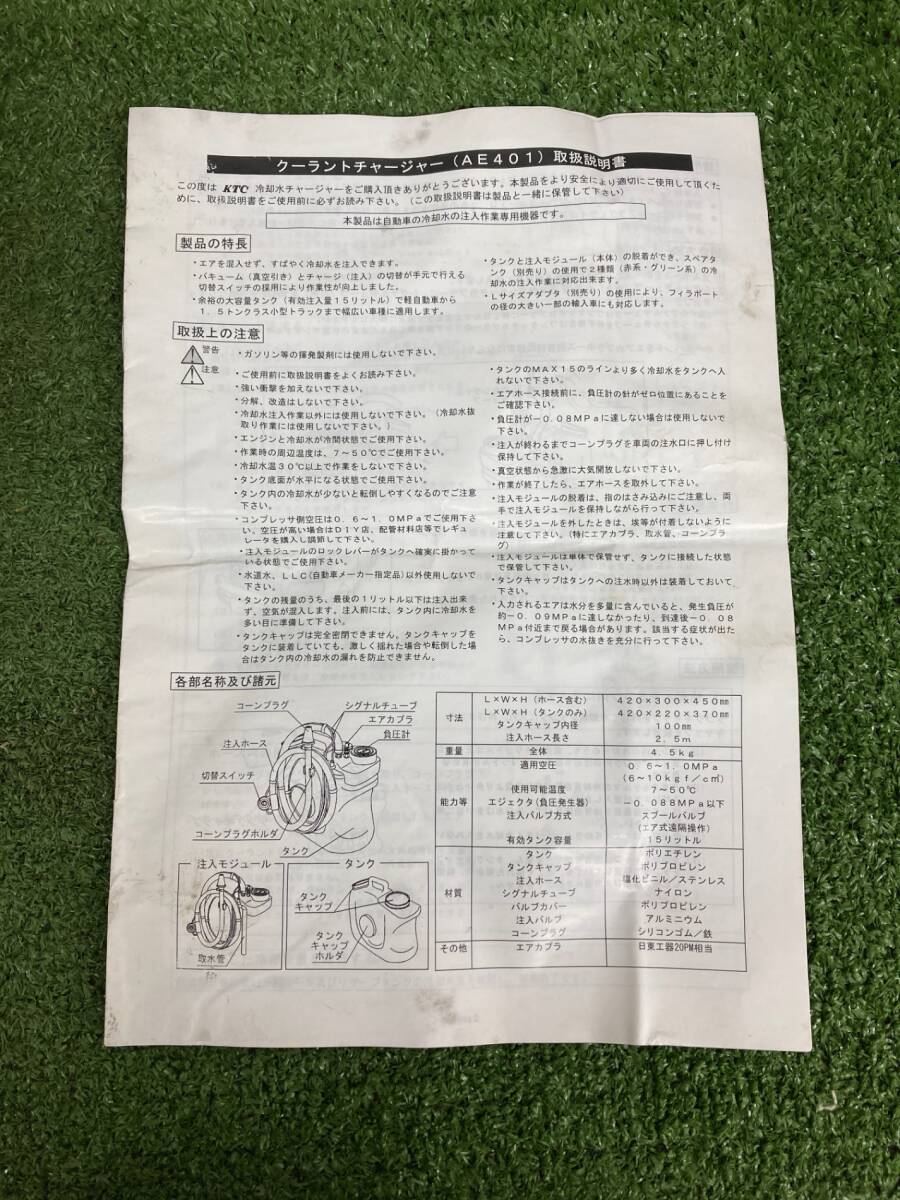 クーラントチャージャー（AE401）取扱説明書
この度は KTC 冷却水チャージャーをご購入頂きありがとうございます。本製品をより安全により適切にご使用して頂くた
めに、取扱説明書をご使用前に必ずお読み下さい。（この取扱説明書は製品と一緒に保管して下さい）
本製品は自動車の冷却水の注入作業専用機器です。
製品の特長
・エアを混入せず、すばやく冷却水を注入できます。
・バキューム（真空引き）とチャージ（注入）の切替が手元で行える
切替スイッチの採用により作業性が向上しました。
・余裕の大容量タンク（有効注入量15リットル）で軽自動車から
1.5トンクラス小型トラックまで幅広い車種に適用します。
・タンクと注入モジュール（本体）の脱着ができ、スペアタ
ンク（別売り）の使用で2種類（赤系・グリーン系）の冷
却水の注入作業に対応出来ます。
・Lサイズアダプタ（別売り）の使用により、フィラポート
の径の大きい一部の輸入車にも対応します。
取扱上の注意
警告
・ガソリン等の揮発製剤には使用しないで下さい。
注意
・ご使用前に取扱説明書をよくお読み下さい。
・強い衝撃を加えないで下さい。
・分解、改造はしないで下さい。
・冷却水注入作業以外には使用しないで下さい。（冷却水抜
取り作業には使用しないで下さい。）
・エンジンと冷却水が冷間状態でご使用下さい。
・作業時の周辺温度は、7～50℃でご使用下さい。
・冷却水温30℃以上で作業をしないで下さい。
・タンク底面が水平になる状態でご使用下さい。
・タンク内の冷却水が少ないと転倒しやすくなるのでご注意
下さい。
・コンプレッサ側空圧は0.6～1.0MPaでご使用下さ
い。空圧が高い場合はDIY店、配管材料店等でレギュ
レータを購入し調節して下さい。
・注入モジュールのロックレバーがタンクへ確実に掛かって
いる状態でご使用下さい。
・水道水、LLC（自動車メーカー指定品）以外使用しないで
下さい。
・タンクの残量のうち、最後の1リットル以下は注入出来
ず、空気が混入します。注入前には、タンク内に冷却水を
多い目に準備して下さい。
・タンクキャップは完全密閉できません。タンクキャップを
タンクに装着していても、激しく揺れた場合や転倒した場
合はタンク内の冷却水の漏れを防止できません。
・タンクのMAX15のラインより多く冷却水をタンクへ入
れないで下さい。
・エアホース接続前に、負圧計の針がゼロ位置にあることを
ご確認下さい。
・負圧計が－0.08MPaに達しない場合は使用しないで
下さい。
・注入が終わるまでコーンプラグを車両の注水口に押し付け
保持して下さい。
・真空状態から急激に大気開放しないで下さい。
・作業が終了したら、エアホースを取外して下さい。
・注入モジュールの脱着は、指のはさみ込みにご注意し、両
手で注入モジュールを保持しながら行って下さい。
・注入モジュールを外したときは、埃等が付着しないように
注意して下さい。（特にエアカプラ、取水管、コーンプラ
グ）
・注入モジュールは単体で保管せず、タンクに接続した状態
で保管して下さい。
・タンクキャップはタンクへの注水時以外は装着しておいて
下さい。
・入力されるエアは水分を多量に含んでいると、発生負圧が
約－0.09MPaに達しなかったり、到達後－0.08
MPa付近まで戻る場合があります。該当する症状が出た
ら、コンプレッサの水抜きを充分に行って下さい。
各部名称及び諸元
コーンプラグ
シグナルチューブ
エアカプラ
負圧計
注入ホース
切替スイッチ
コーンプラグホルダ
タンク
注入モジュール
取水管
タンク
タンク
キャップ
タンク
キャップ
ホルダ
寸法
L×W×H（ホース含む） 420×300×450㎜
L×W×H（タンクのみ） 420×220×370㎜
タンクキャップ内径 100㎜
注入ホース長さ 2.5m
重量 全体 4.5kg
能力等
適用空圧 0.6～1.0MPa
（6～10kgf/c㎡）
使用可能温度 7～50℃
エジェクタ（負圧発生器） －0.088MPa以下
注入バルブ方式 スプールバルブ
（エア式遠隔操作）
有効タンク容量 15リットル
材質
タンク ポリエチレン
タンクキャップ ポリプロピレン
注入ホース 塩化ビニル／ステンレス
シグナルチューブ ナイロン
バルブカバー ポリプロピレン
注入バルブ アルミニウム
コーンプラグ シリコンゴム／鉄
その他 エアカプラ 日東工器20PM相当